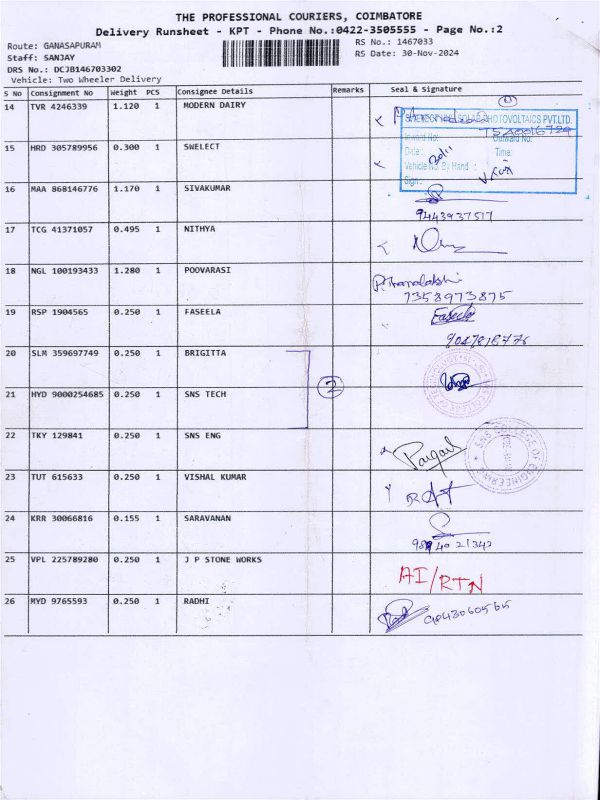 THE PROFESSIONAL COURIERS, COIMBATORE
Delivery Runsheet - KPT - Phone No.:0422-3505555 - Page No.:2
Route: GANASAPURAM
Staff: SANJAY
DRS No.: DCJB146703302
Vehicle: Two Wheeler Delivery
RS No.: 1467033
RS Date: 30-Nov-2024
S No Consignment No Weight PCS Consignee Details Remarks Seal & Signature
14 TVR 4246339 1.120 1 MODERN DAIRY
PHOTOVOLTAICS PVT.LTD.
Inward No: Outward No:
Date: Time:
Vehicle No. By Hand :
Sign:
15 HRD 305789956 0.300 1 SWELECT
16 MAA 868146776 1.170 1 SIVAKUMAR
9443937517
17 TCG 41371057 0.495 1 NITHYA
18 NGL 100193433 1.280 1 POOVARASI
7358973875
19 RSP 1904565 0.250 1 FASEELA Faseela
20 SLM 359697749 0.250 1 BRIGITTA
21 HYD 9000254685 0.250 1 SNS TECH 2
22 TKY 129841 0.250 1 SNS ENG
SNS COLLEGE OF ENGINEERING
23 TUT 615633 0.250 1 VISHAL KUMAR
24 KRR 30066816 0.155 1 SARAVANAN
25 VPL 225789280 0.250 1 J P STONE WORKS AI/RTN
26 MYD 9765593 0.250 1 RADHI